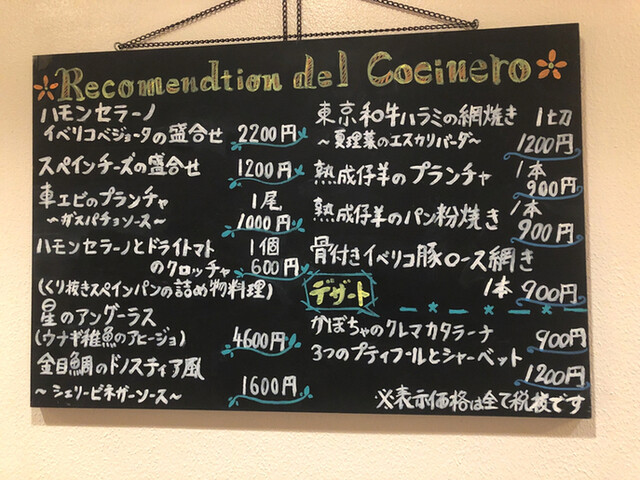 Recomendtion del Cocinero
ハモンセラーノ
イベリコベジョータの盛合せ 2200円
スペインチーズの盛合せ 1200円
車エビのプランチャ 1尾
~ガスパチョソース~ 1000円
ハモンセラーノとドライトマト 1個
のクロッチャ 600円
(くり抜きスペインパンの詰め物料理)
星のアングーラス
(ウナギ稚魚のアヒージョ) 4600円
金目鯛のドノスティア風
~シェリービネガーソース~ 1600円
東京和牛ハラミの網焼き 1切
~夏理菜のエスカリバーダ~ 1200円
熟成仔羊のプランチャ 1本
900円
熟成仔羊のパン粉焼き 1本
900円
骨付きイベリコ豚ロース網き
1本 900円
デザート
かぼちゃのクレマカタラーナ 900円
3つのプティフールとシャーベット
1200円
※表示価格は全て税抜です